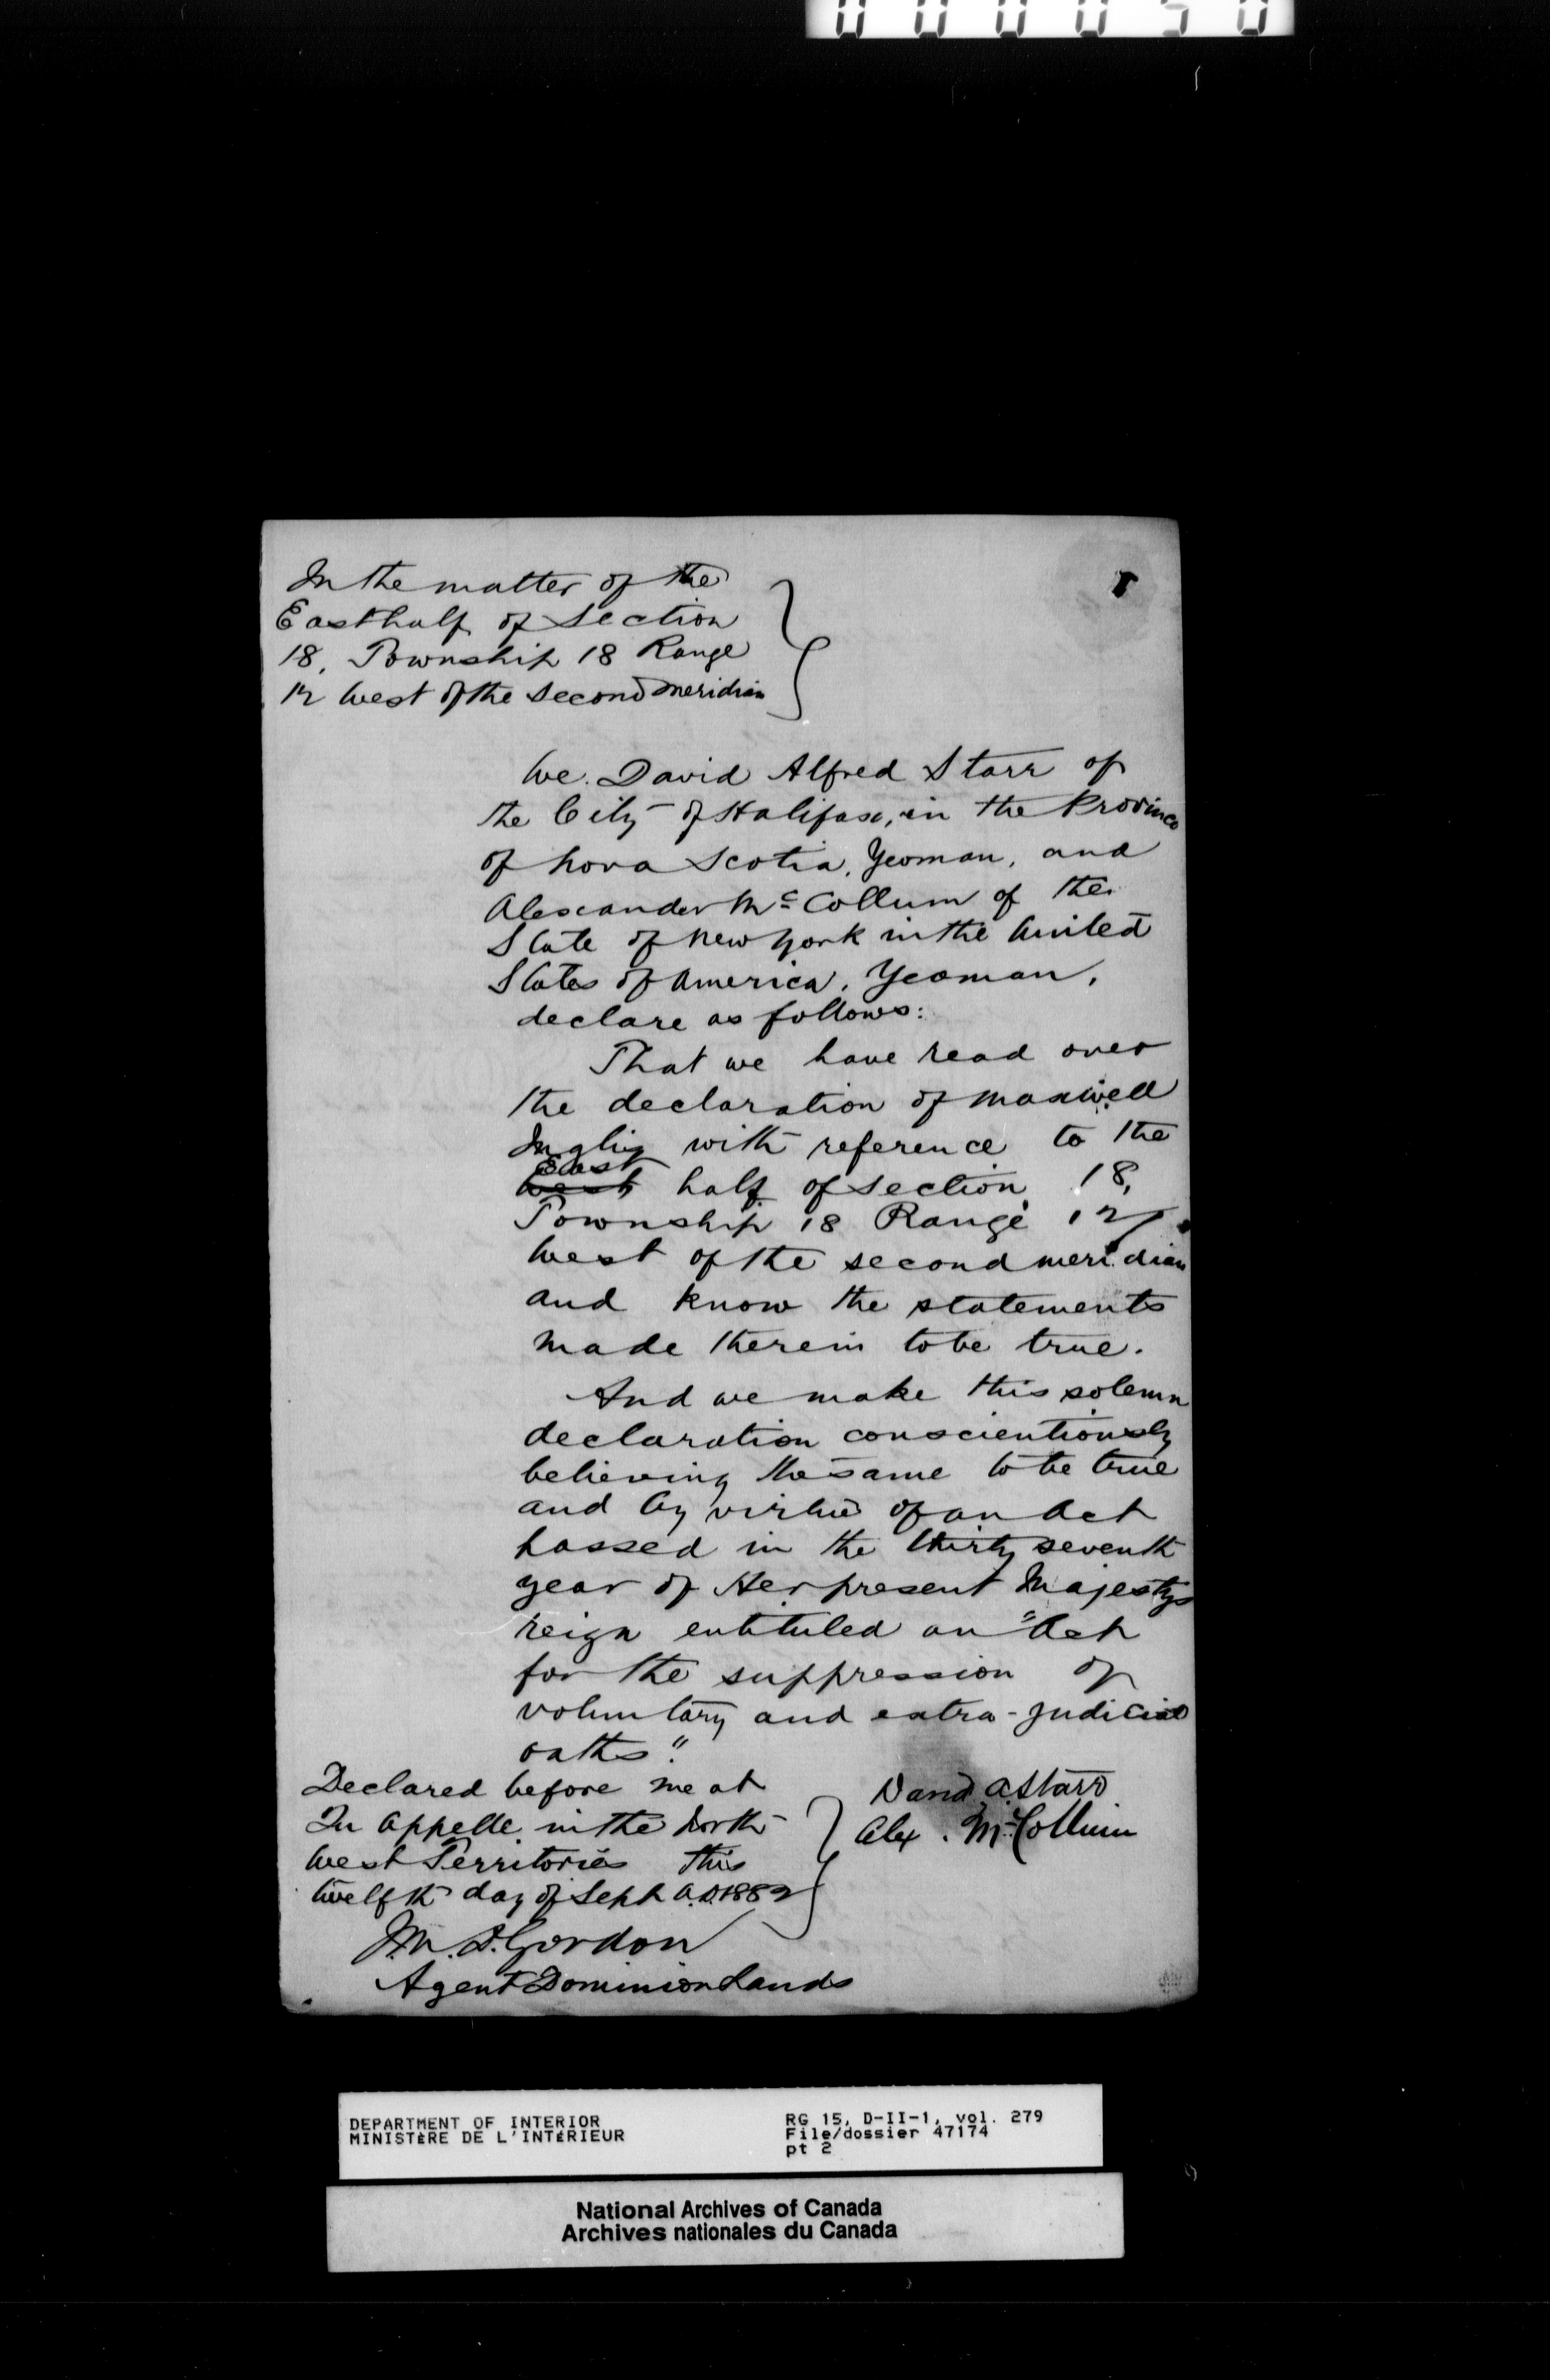 000050
In the matter of the
East half of Section
18, Township 18 Range
12 West of the Second Meridian
We. David Alfred Starr of
the City of Halifax, in the Province
of Nova Scotia, Yeoman, and
Alexander Mc Collum of the
State of New York in the United
States of America, Yeoman,
declare as follows:
That we have read over
the declaration of Maxwell
Inglis with reference to the
East
West half of Section 18,
Township 18 Range 12
West of the second meridian
and know the statements
made therein to be true.
And we make this solemn
declaration conscientiously
believing the same to be true
and by virtue of an Act
passed in the thirty seventh
year of Her present Majestys
reign entituled an "Act
for the suppression of
voluntary and extra-judicial
oaths".
Declared before me at
Qu Appelle in the North
West Territories this
twelfth day of Sept A.D. 1882
David A. Starr
Alex. Mc Collum
Gordon
Agent Dominion Lands
DEPARTMENT OF INTERIOR
MINISTÈRE DE L'INTÉRIEUR
RG 15, D-II-1, vol. 279
File/dossier 47174
pt 2
National Archives of Canada
Archives nationales du Canada